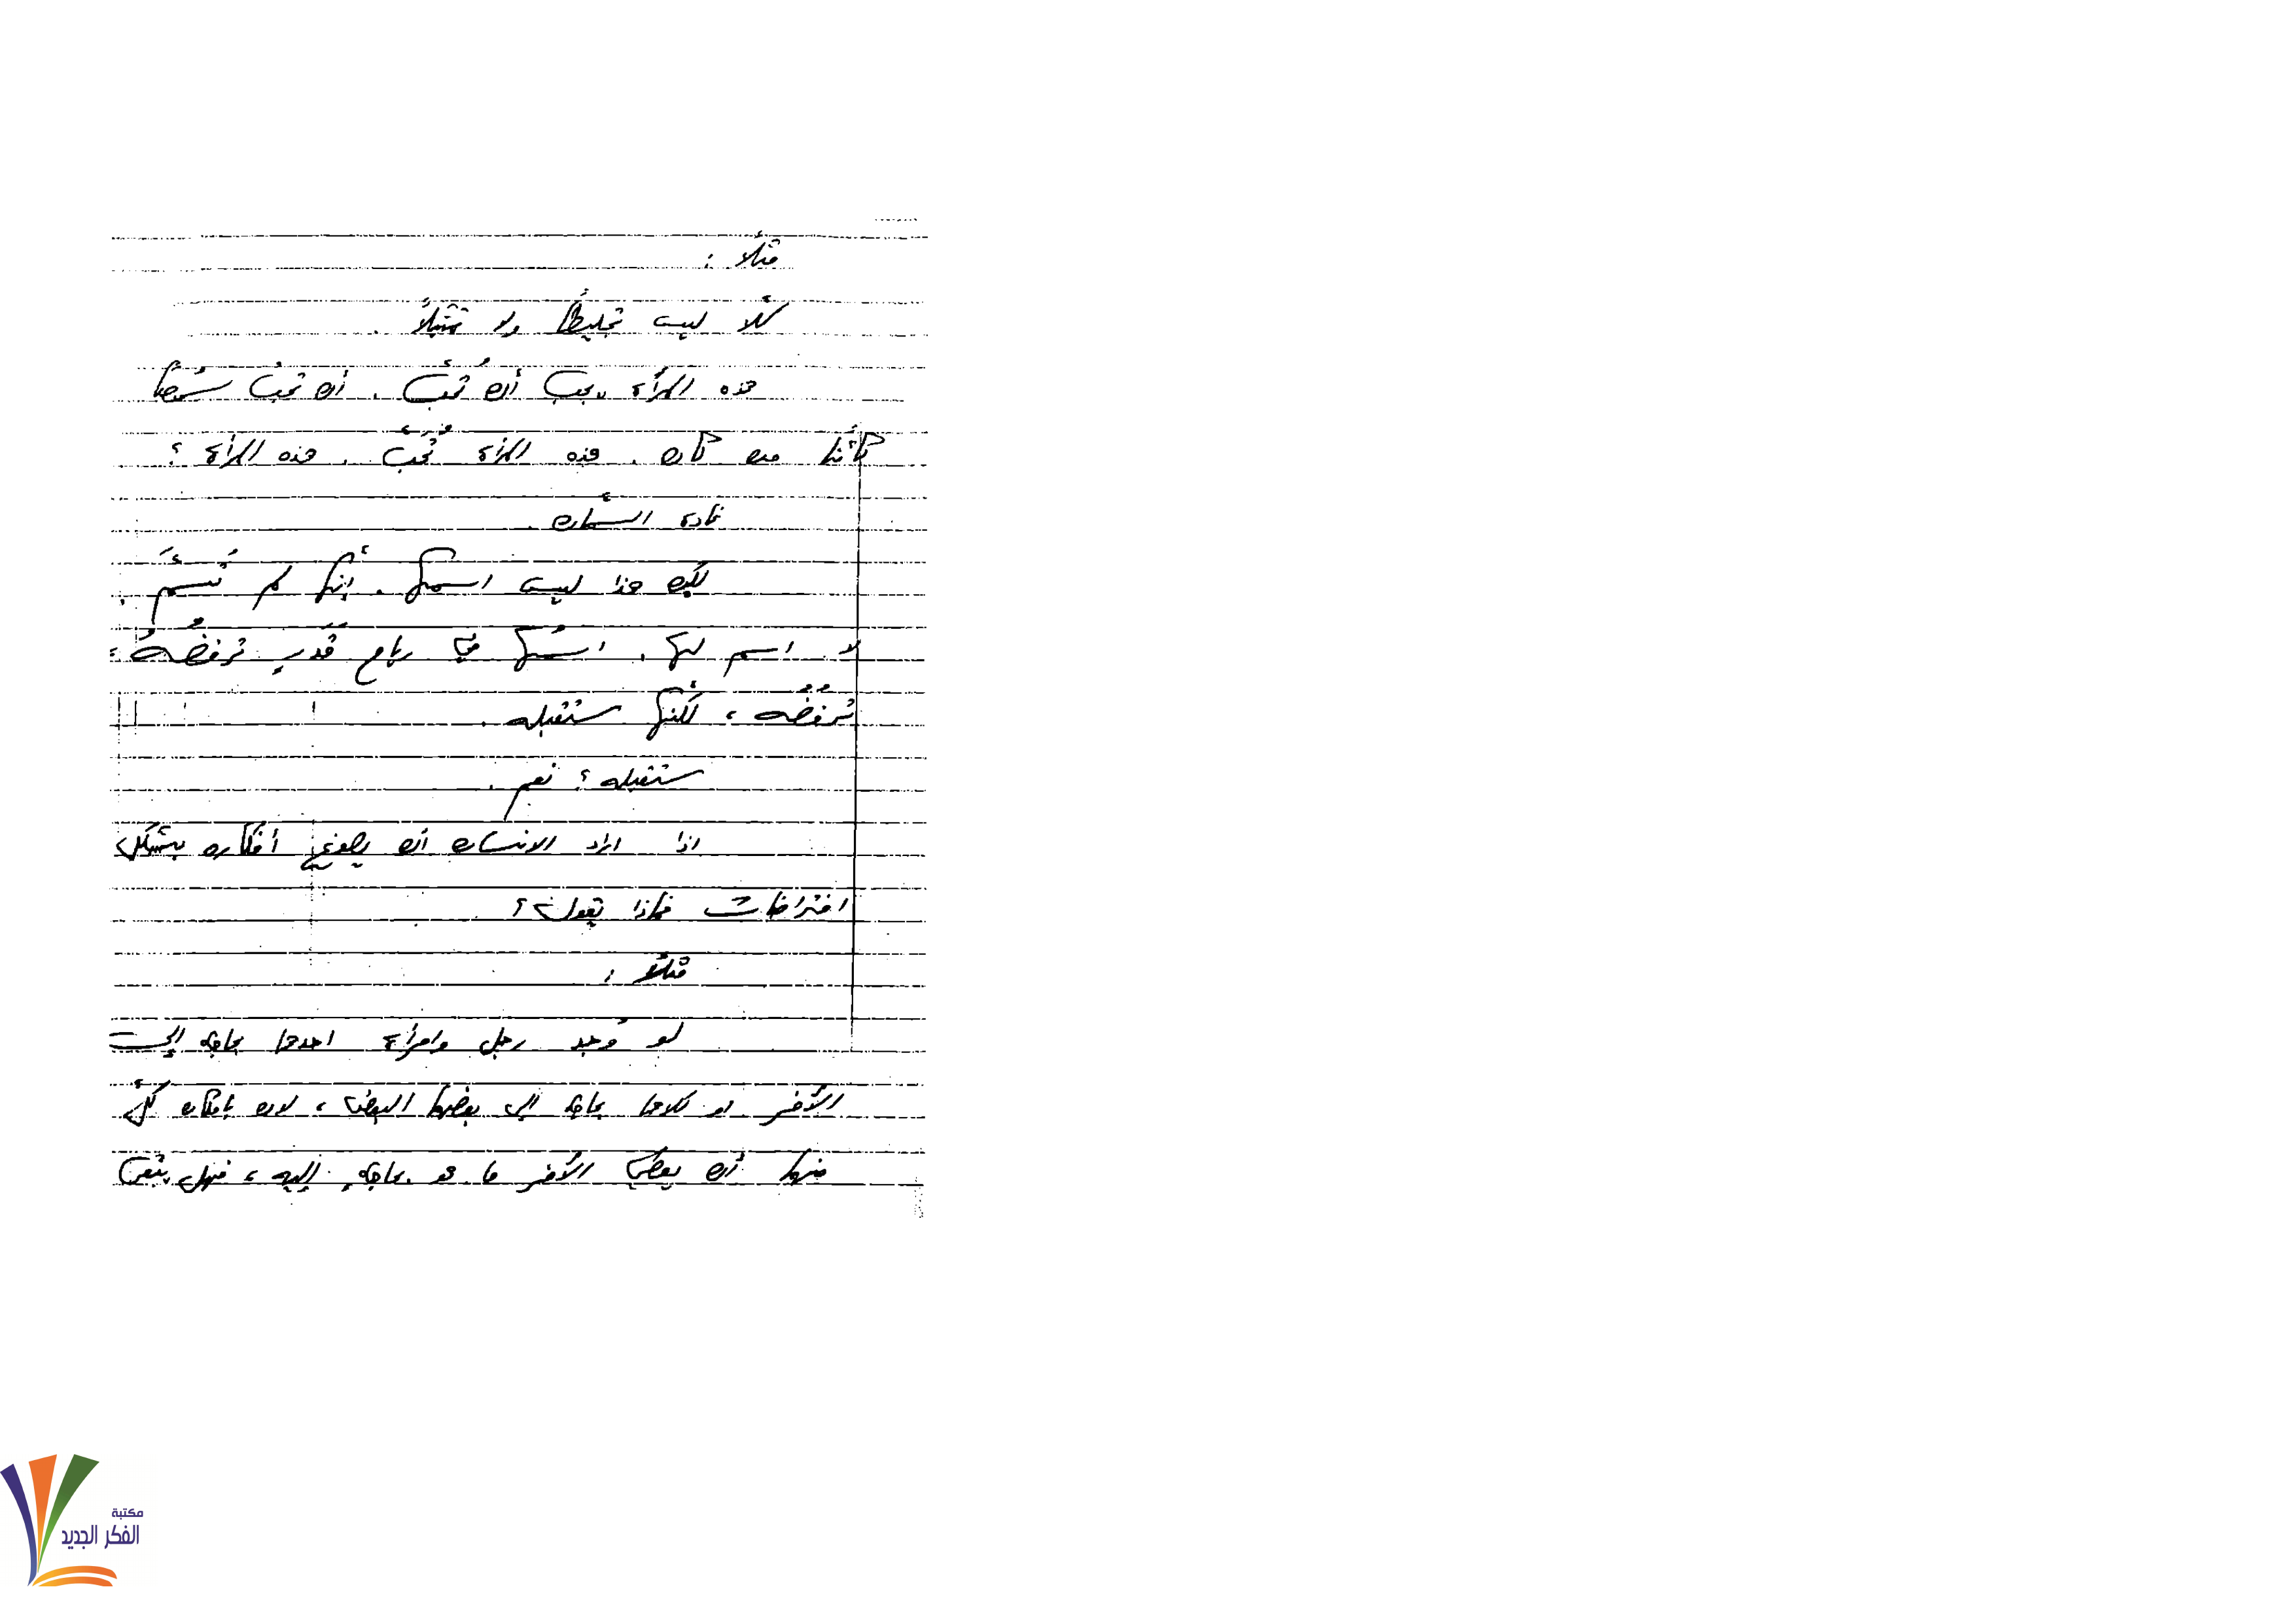 مثلاً :
كلا ليست تخليطاً ولا تمثيلاً .
هذه المرأة يجب أن تُحَبّ . أن تحبّ شخصاً
كائناً من كان . هذه المرأة تُحَبّ . هذه المرأة ؟
غادة السمّان .
لكن هذا ليس اسمها . إنها لم تُسَمَّ .
لا اسم لها . اسمُها في رياح ترفضُهُ ،
ترفضُه ، لكنّها ستقبله .
ستقبله ؟ نعم .
اذا اراد الانسان أن يصوغ أفكاره بشكل
افتراضات فماذا يقول ؟
مثلاً :
لو وُجد رجل وامرأة احدهما بحاجة إلى
الآخر او كلاهما بحاجة الى بعضهما البعض ، لان بامكان كلّ
منهما أن يعطي الآخر ما هو بحاجةٍ إليه ، فهل يبقى
مكتبة
الفكر الجديد